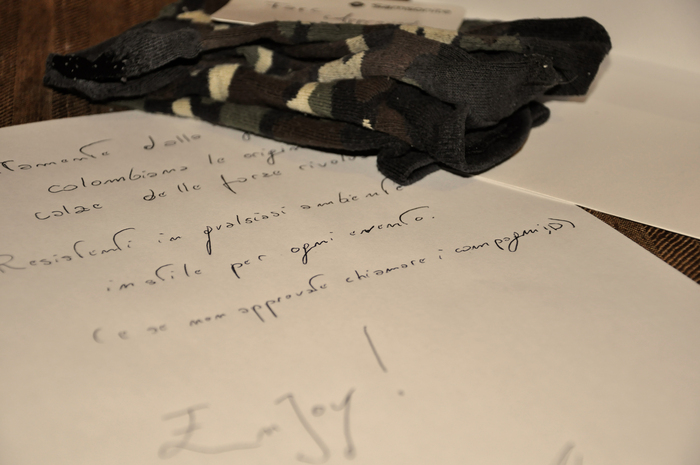 dalla
colombiana le
calze delle forze
Resistenti in qualsiasi ambiente
in stile per ogni evento.
(e se non approvate chiamare i compagni;D)
EnJoy!